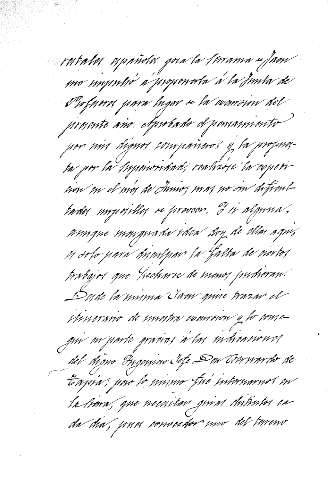 restales españoles goza la Serrana de Jaen
me impulsó á proponerla á la Junta de
Profesores para lugar de la excursion del
presente año. Aprobado el pensamiento
por mis dignos compañeros y la propues-
ta por la Superioridad, realizóse la expedi-
cion en el mes de Junio, mas no sin dificul-
tades imposibles de preveer. Y si alguna,
aunque menguada idea doy de ellas aqui,
es solo para disculpar la falta de ciertos
trabajos que hecharse de menos pudieran.
Desde la misma Jaen quise trazar el
itinerario de nuestra excursion y lo conse-
gui en parte gracias á las indicaciones
del digno Ingeniero Jefe Don Bernardo de
Tapia; pero lo mismo fué internarnos en
la Sierra, que necesitar guias distintos ca-
da dia, pues conocedor uno del terreno